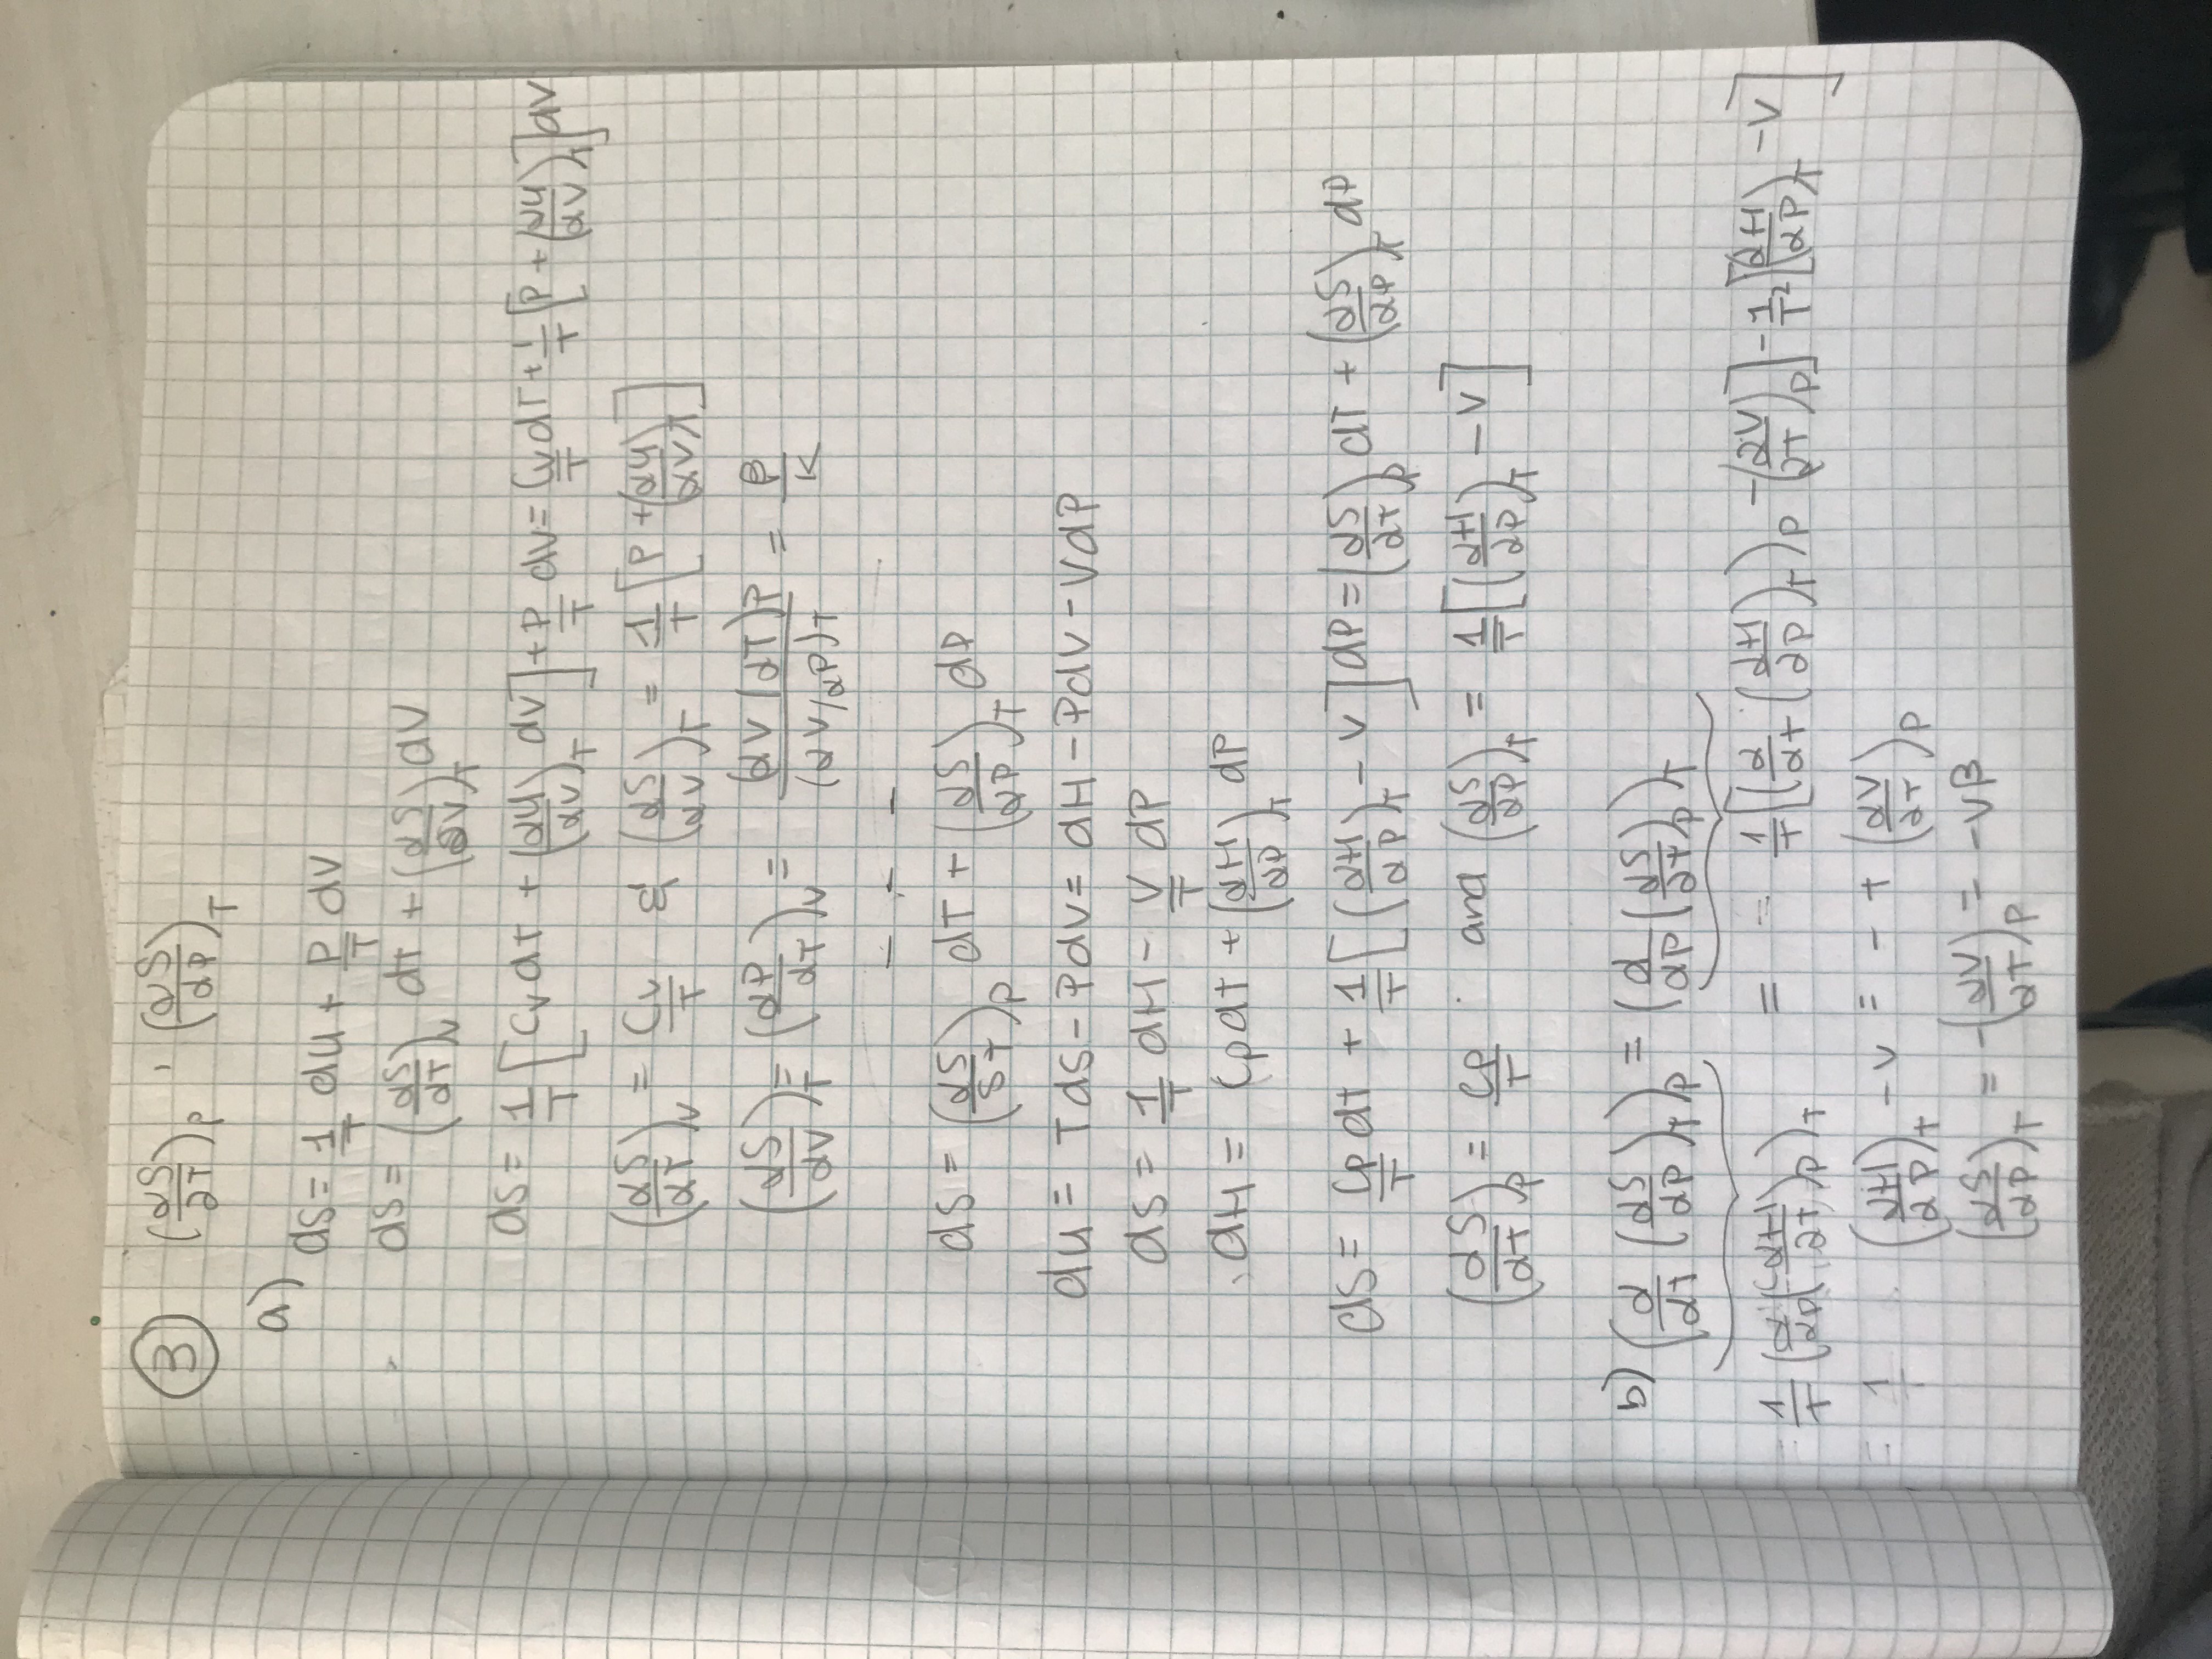 ③ (∂S/∂T)_P , (∂S/∂P)_T
a)
dS = 1/T dU + P/T dV
dS = (∂S/∂T)_V dT + (∂S/∂V)_T dV
dS = 1/T [C_V dT + (∂U/∂V)_T dV] + P/T dV = C_V/T dT + 1/T [P + (∂U/∂V)_T] dV
(∂S/∂T)_V = C_V/T & (∂S/∂V)_T = 1/T [P + (∂U/∂V)_T]
(∂S/∂V)_T = (∂P/∂T)_V = (∂V/∂T)_P / (∂V/∂P)_T = β/K
- - -
dS = (∂S/δT)_P dT + (∂S/∂P)_T dP
dU = TdS - PdV = dH - PdV - VdP
dS = 1/T dH - V/T dP
dH = C_P dT + (∂H/∂P)_T dP
dS = C_P/T dT + 1/T [(∂H/∂P)_T - V] dP = (∂S/∂T)_P dT + (∂S/∂P)_T dP
(∂S/∂T)_P = C_P/T and (∂S/∂P)_T = 1/T [(∂H/∂P)_T - V]
b) (∂/∂T (∂S/∂P)_T)_P = (∂/∂P (∂S/∂T)_P)_T
= 1/T (∂/∂P (∂H/∂T)_P)_T = 1/T [(∂/∂T (∂H/∂P)_T)_P - (∂V/∂T)_P] - 1/T² [(∂H/∂P)_T - V]
(∂H/∂P)_T - V = - T (∂V/∂T)_P
(∂S/∂P)_T = -(∂V/∂T)_P = -Vβ